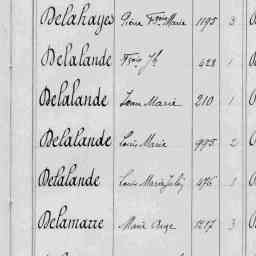 Delahayes Pierre Fçois Marie 1195 3
Delalande Fçois Jh 428 1
Delalande Jean Marie 210 1
Delalande Louis Marie 995 2
Delalande Louis Marie 476 1
Delamarre Marie Ange 1217 3